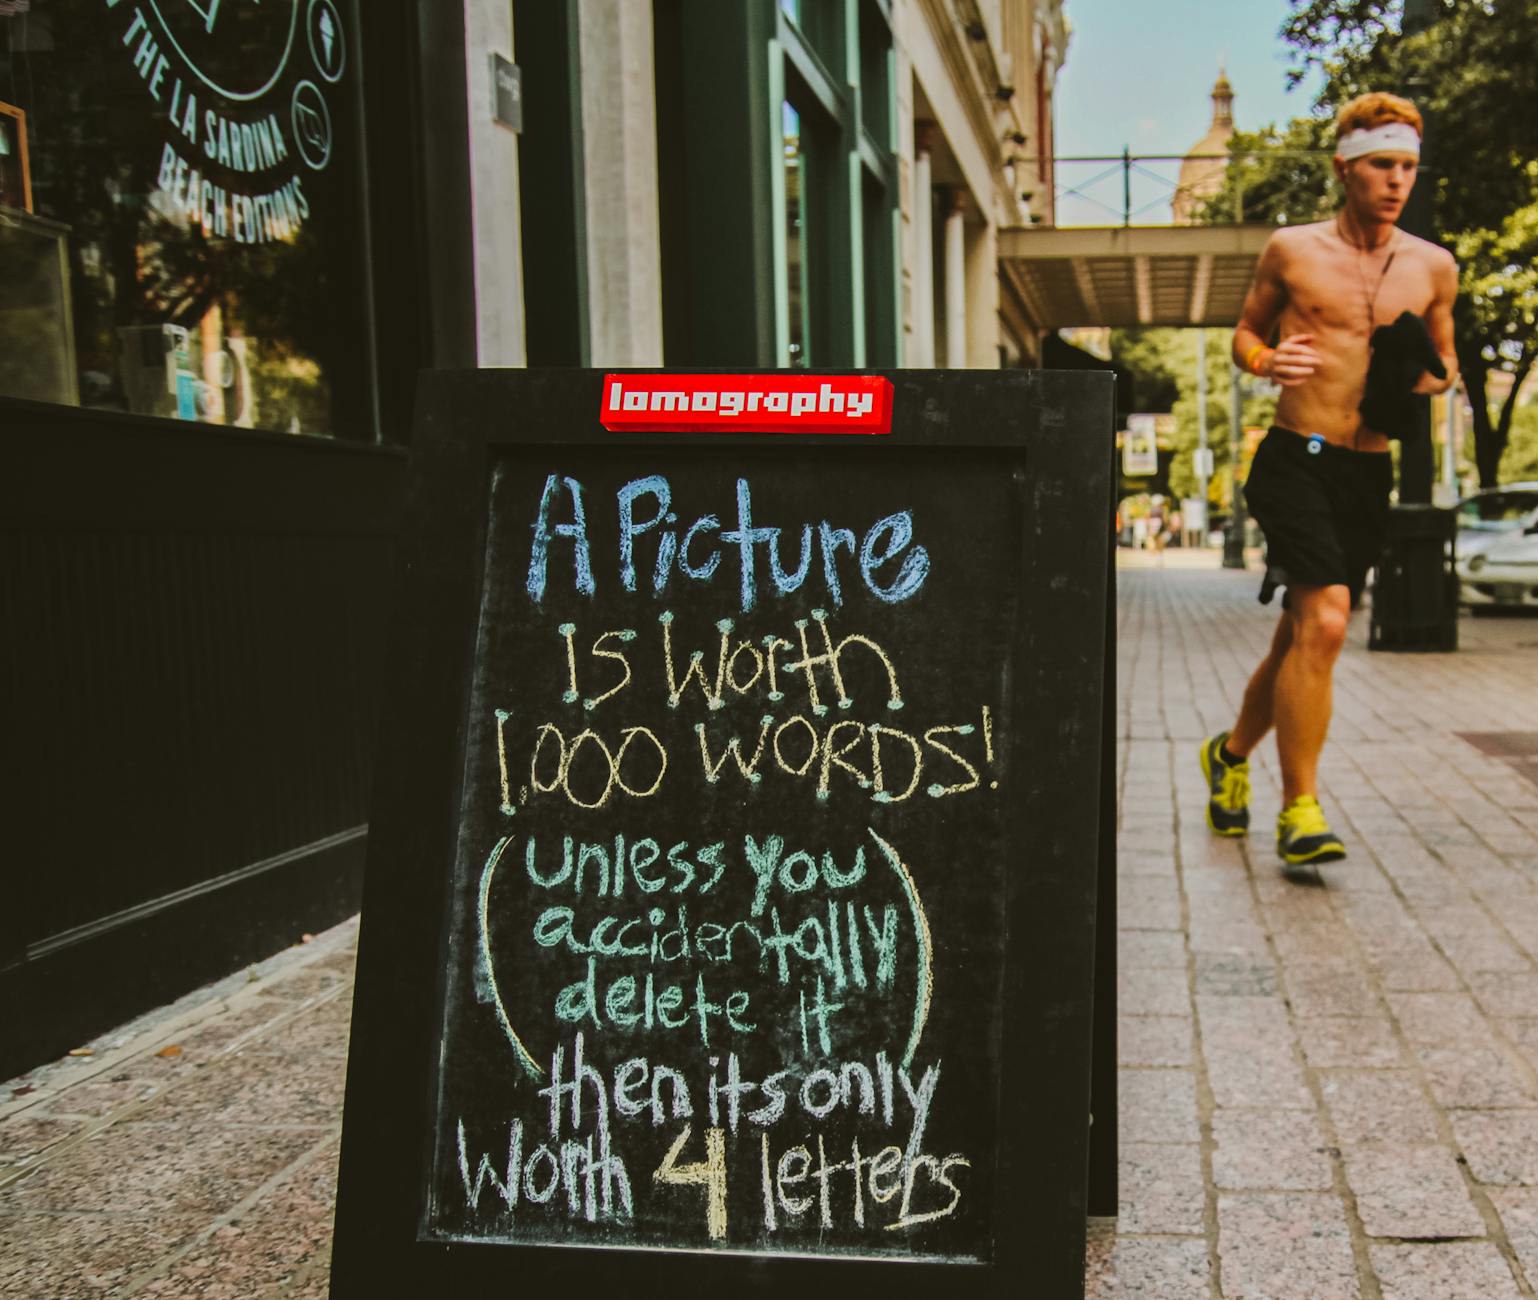 THE LA SARDINA
BEACH EDITIONS
lomography
A Picture
Is Worth
1,000 WORDS!
(unless you
accidentally
delete it)
then its only
Worth 4 letters